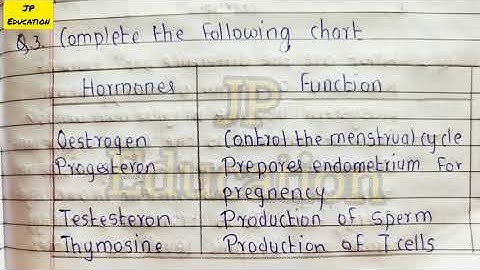 JP
EDUCATION
Q.3. Complete the following chart
Hormones Function
JP
Education
Oestrogen Control the menstrual cycle
Progesteron Prepares endometrium for
pregnency
Testesteron Production of sperm
Thymosine Production of T cells